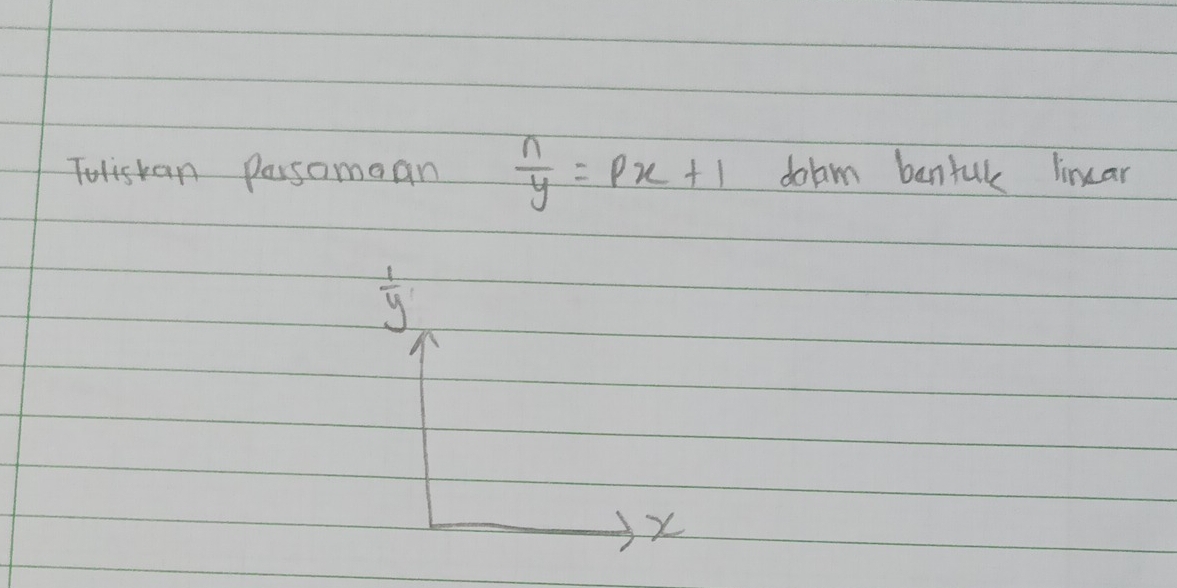 Tuliskan persamaan n/y = px + 1 dalam bentuk linear
1/y
x